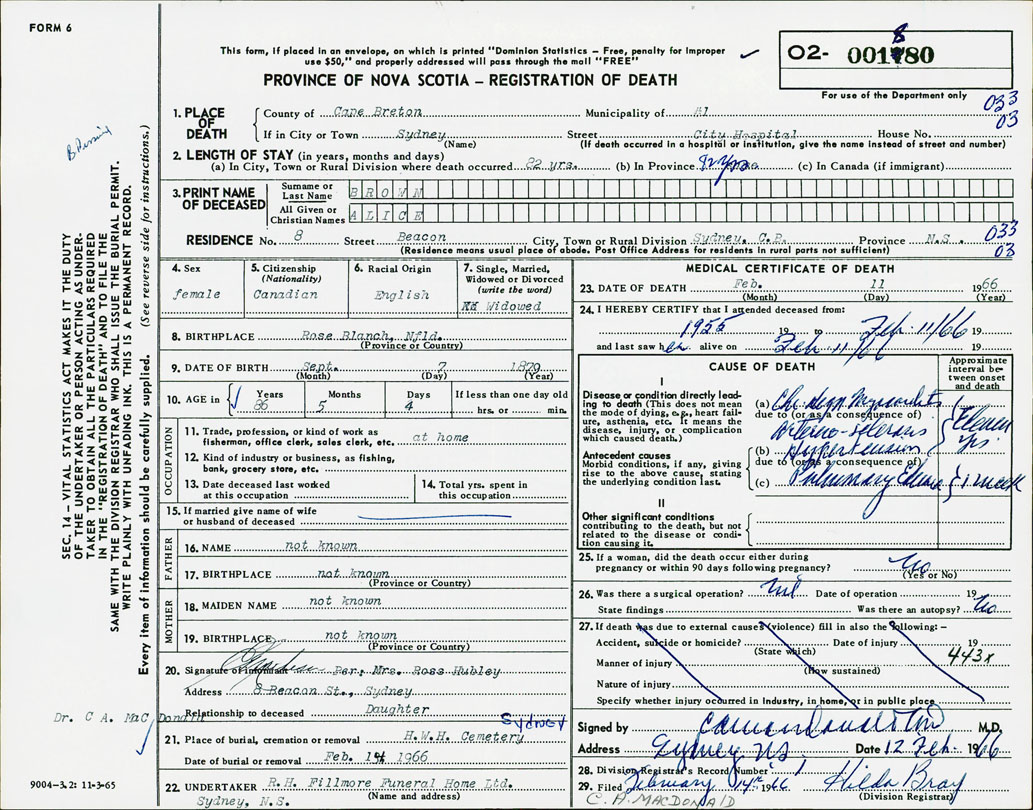 FORM 6
This form, if placed in an envelope, on which is printed "Dominion Statistics – Free, penalty for improper
use $50," and properly addressed will pass through the mail "FREE"
PROVINCE OF NOVA SCOTIA – REGISTRATION OF DEATH
02- 001780
8
For use of the Department only
033
03
1. PLACE OF DEATH
County of Cape Breton Municipality of #1
If in City or Town Sydney Street City Hospital House No.
(Name) (If death occurred in a hospital or institution, give the name instead of street and number)
2. LENGTH OF STAY (in years, months and days)
(a) In City, Town or Rural Division where death occurred 22 yrs. (b) In Province (c) In Canada (if immigrant)
3. PRINT NAME OF DECEASED
Surname or Last Name BROWN
All Given or Christian Names ALICE
RESIDENCE No. 8 Street Beacon City, Town or Rural Division Sydney, C.B. Province N.S. 033
(Residence means usual place of abode. Post Office Address for residents in rural parts not sufficient) 03
4. Sex
female
5. Citizenship (Nationality)
Canadian
6. Racial Origin
English
7. Single, Married, Widowed or Divorced (write the word)
Widowed
8. BIRTHPLACE Rose Blanch, Nfld.
(Province or Country)
9. DATE OF BIRTH Sept. 7 1879
(Month) (Day) (Year)
10. AGE in Years 86 Months 5 Days 4 If less than one day old hrs. or min.
OCCUPATION
11. Trade, profession, or kind of work as fisherman, office clerk, sales clerk, etc. at home
12. Kind of industry or business, as fishing, bank, grocery store, etc.
13. Date deceased last worked at this occupation
14. Total yrs. spent in this occupation
15. If married give name of wife or husband of deceased
FATHER
16. NAME not known
17. BIRTHPLACE not known
(Province or Country)
MOTHER
18. MAIDEN NAME not known
19. BIRTHPLACE not known
(Province or Country)
20. Signature of informant Per: Mrs. Ross Hubley
Address 8 Beacon St., Sydney
Relationship to deceased Daughter
21. Place of burial, cremation or removal H.W.H. Cemetery Sydney
Date of burial or removal Feb. 14 1966
22. UNDERTAKER R.H. Fillmore Funeral Home Ltd.
Sydney, N.S. (Name and address)
MEDICAL CERTIFICATE OF DEATH
23. DATE OF DEATH Feb. 11 1966
(Month) (Day) (Year)
24. I HEREBY CERTIFY that I attended deceased from:
1955 19 to Feb. 11/66 19
and last saw her alive on Feb 11/66 19
CAUSE OF DEATH
Approximate interval between onset and death
I
Disease or condition directly leading to death (This does not mean the mode of dying, e.g., heart failure, asthenia, etc. It means the disease, injury, or complication which caused death.)
(a)
due to (or as a consequence of)
Antecedent causes
Morbid conditions, if any, giving rise to the above cause, stating the underlying condition last.
(b) Hypertension
Eleven yrs.
due to (or as a consequence of)
(c) Pulmonary Edema 1 week
II
Other significant conditions contributing to the death, but not related to the disease or condition causing it.
25. If a woman, did the death occur either during pregnancy or within 90 days following pregnancy? No
(Yes or No)
26. Was there a surgical operation? Nil Date of operation 19
State findings Was there an autopsy? No
27. If death was due to external causes (violence) fill in also the following: –
Accident, suicide or homicide? Date of injury 19
(State which) 443x
Manner of injury
(How sustained)
Nature of injury
Specify whether injury occurred in industry, in home, or in public place
Signed by M.D.
Address Sydney NS Date 12 Feb. 1966
28. Division Registrar's Record Number
29. Filed February 14th 1966 Hilda Bray
(Division Registrar)
C. A. MACDONALD
SEC. 14 – VITAL STATISTICS ACT MAKES IT THE DUTY
OF THE UNDERTAKER OR PERSON ACTING AS UNDER-
TAKER TO OBTAIN ALL THE PARTICULARS REQUIRED
IN THE "REGISTRATION OF DEATH" AND TO FILE THE
SAME WITH THE DIVISION REGISTRAR WHO SHALL ISSUE THE BURIAL PERMIT.
WRITE PLAINLY WITH UNFADING INK. THIS IS A PERMANENT RECORD.
Every item of information should be carefully supplied. (See reverse side for instructions.)
Dr. C A. MacDonald
9004–3.2: 11-3-65